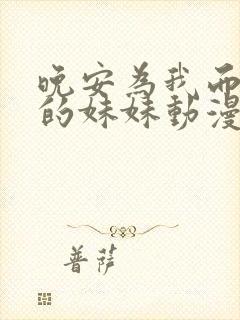 晚安為我而
的妹妹動漫
普萨